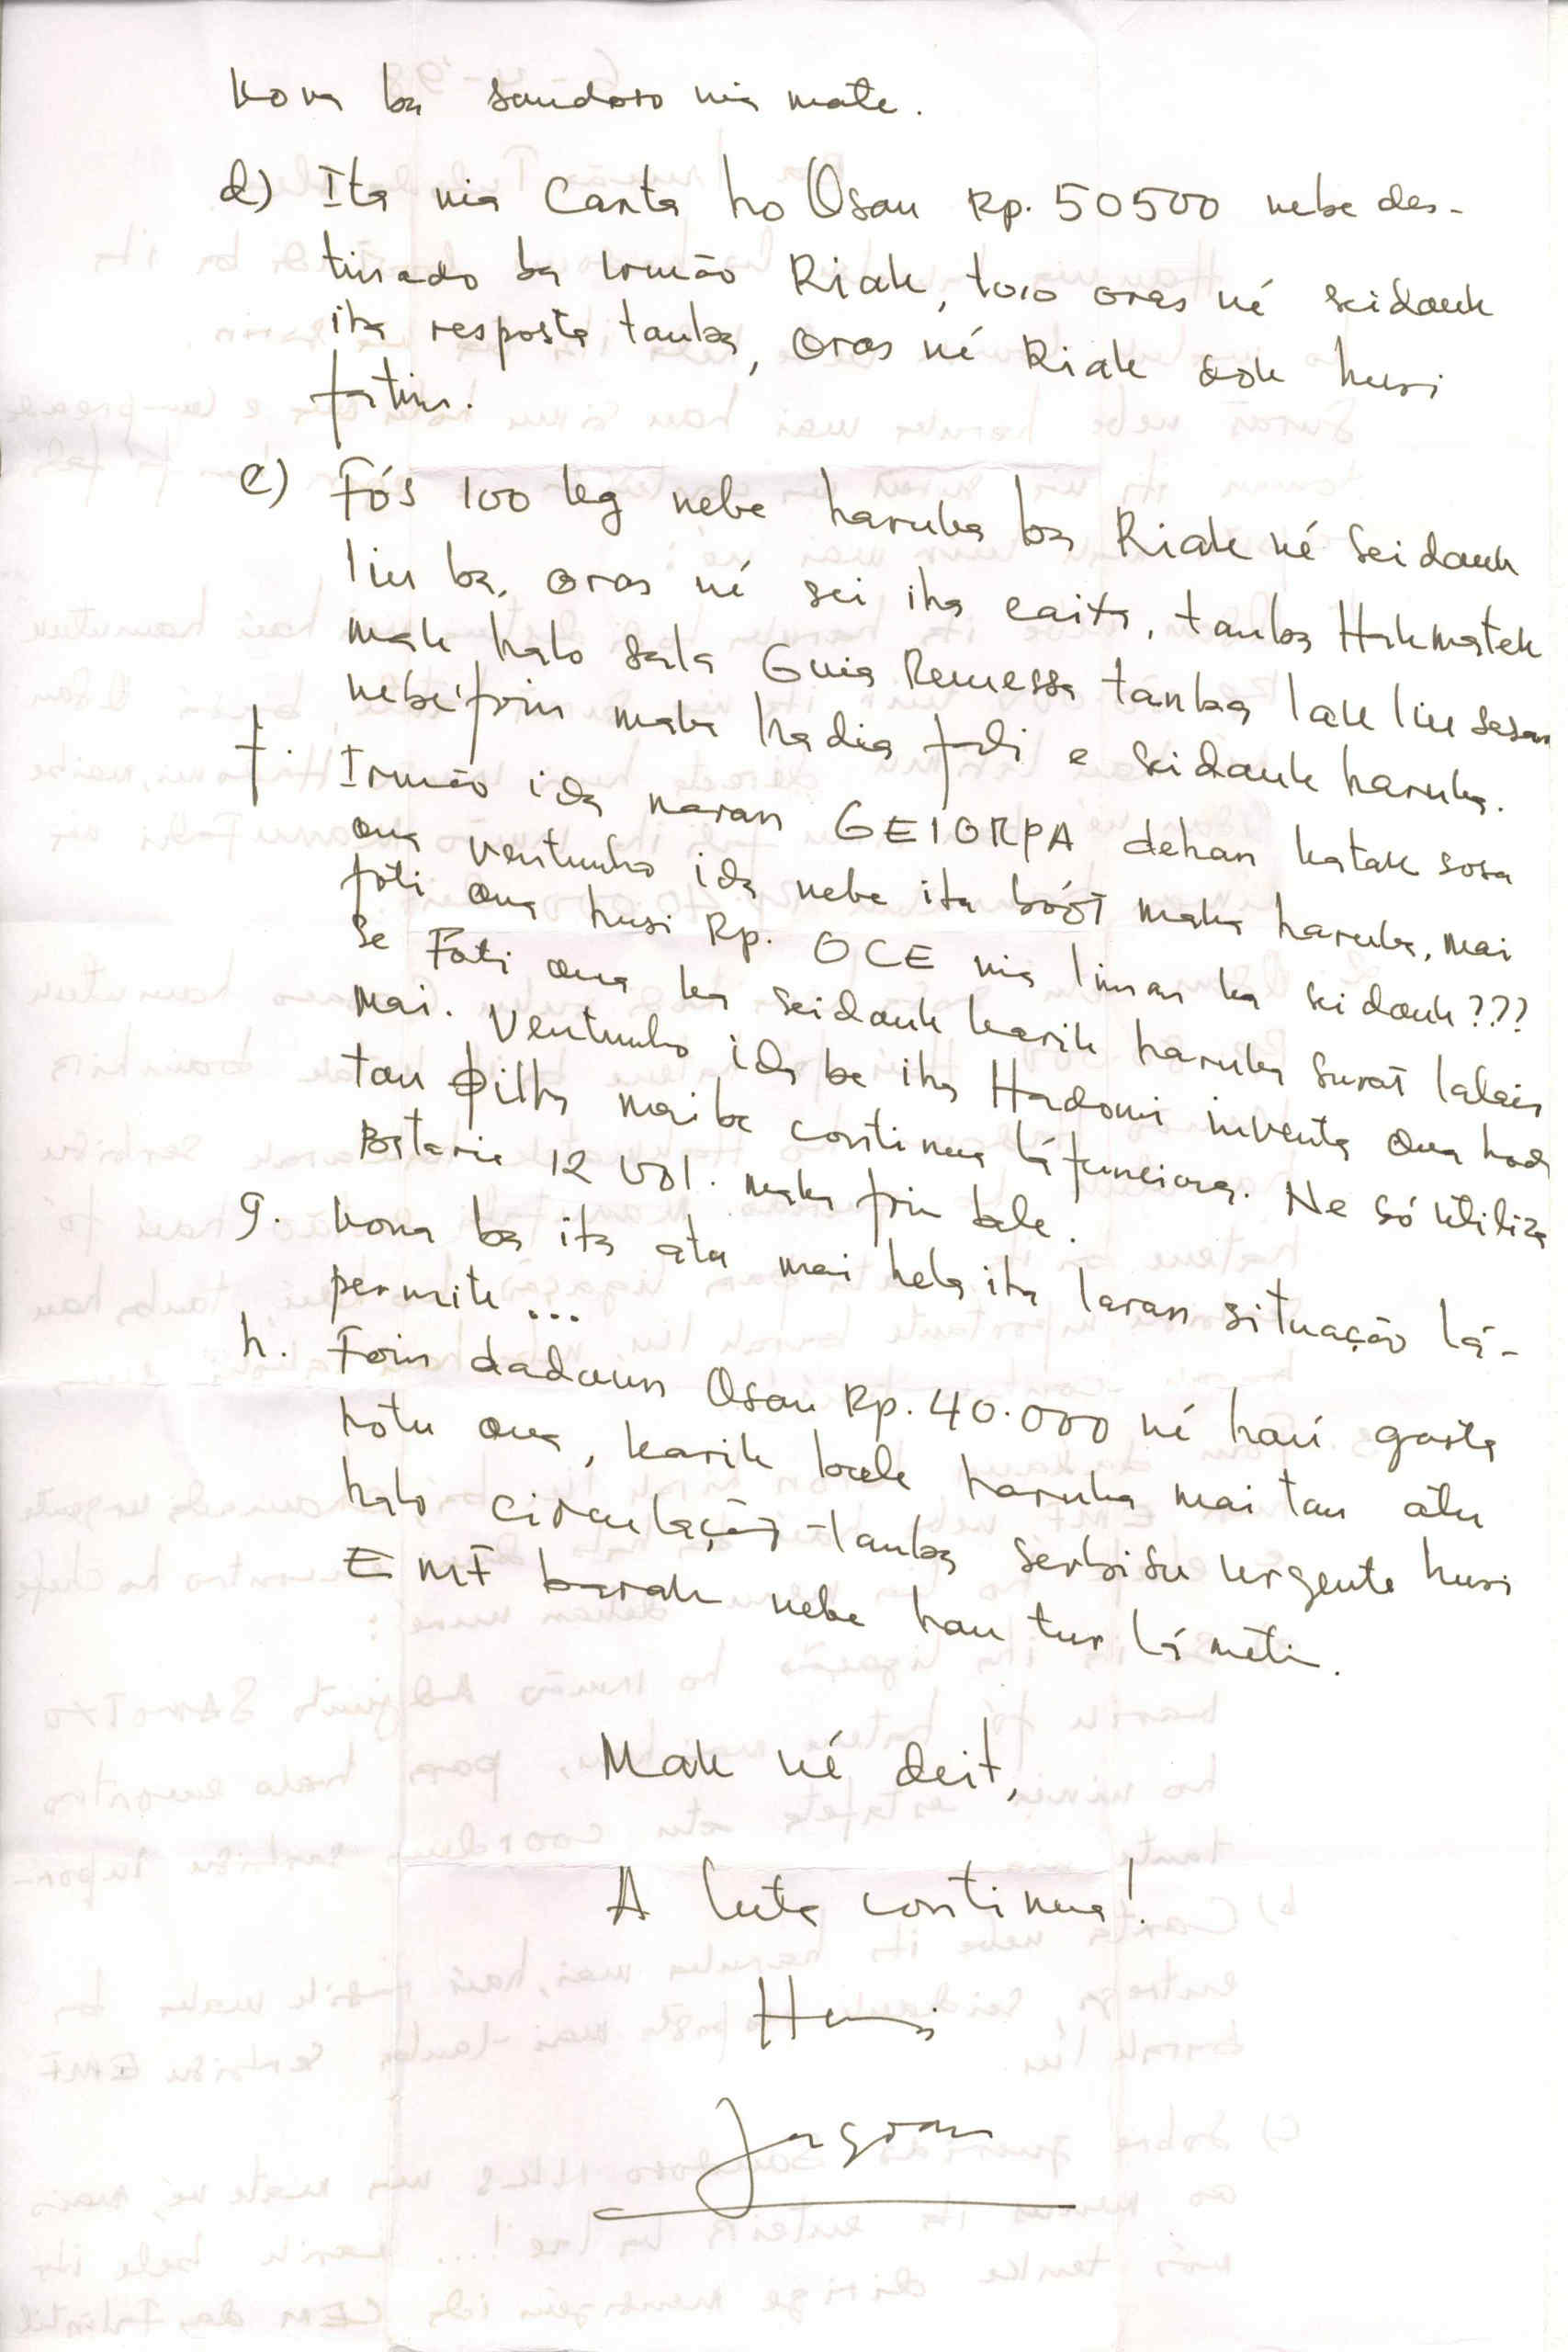 kona ba saudoso nia mate.
d) Ita nia Carta ho Osan Rp. 50500 nebe des-
tinado ba Irmão Riak, to'o oras né seidauk
iha resposta tanba, oras né Riak dok husi
fatin.
e) Fós 100 kg nebe haruka ba Riak né seidauk
liu ba, oras né sei iha caita, tanba Hakmatek
mak halo sala Guia Remessa tanba lak liu sasan
nebé foin maka hadia fali e seidauk haruka.
f. Irmão ida naran GEIORPA dehan katak sosa
ona ventunho ida nebe ita bóót maka haruka, mai
foti ona husi Rp. OCE nia liman ka seidauk???
Se Foti ona ka seidauk karik haruka surat lalais
mai. Ventunho ida be iha Hadomi inventa ona hodi
tau pilha maibe continua lá funciona. Ne só utiliza
Bataria 12 vol. maka foin bele.
g. Kona ba ita atu mai hela iha laran situação lá-
permite...
h. Foin dadaun Osan Rp. 40.000 né haú gasta
hotu ona, karik bele haruka mai tan atu
halo circulação tanba serbisu urgente husi
EMF barak nebe hau tur lá metin.
Mak né deit,
A luta continua!